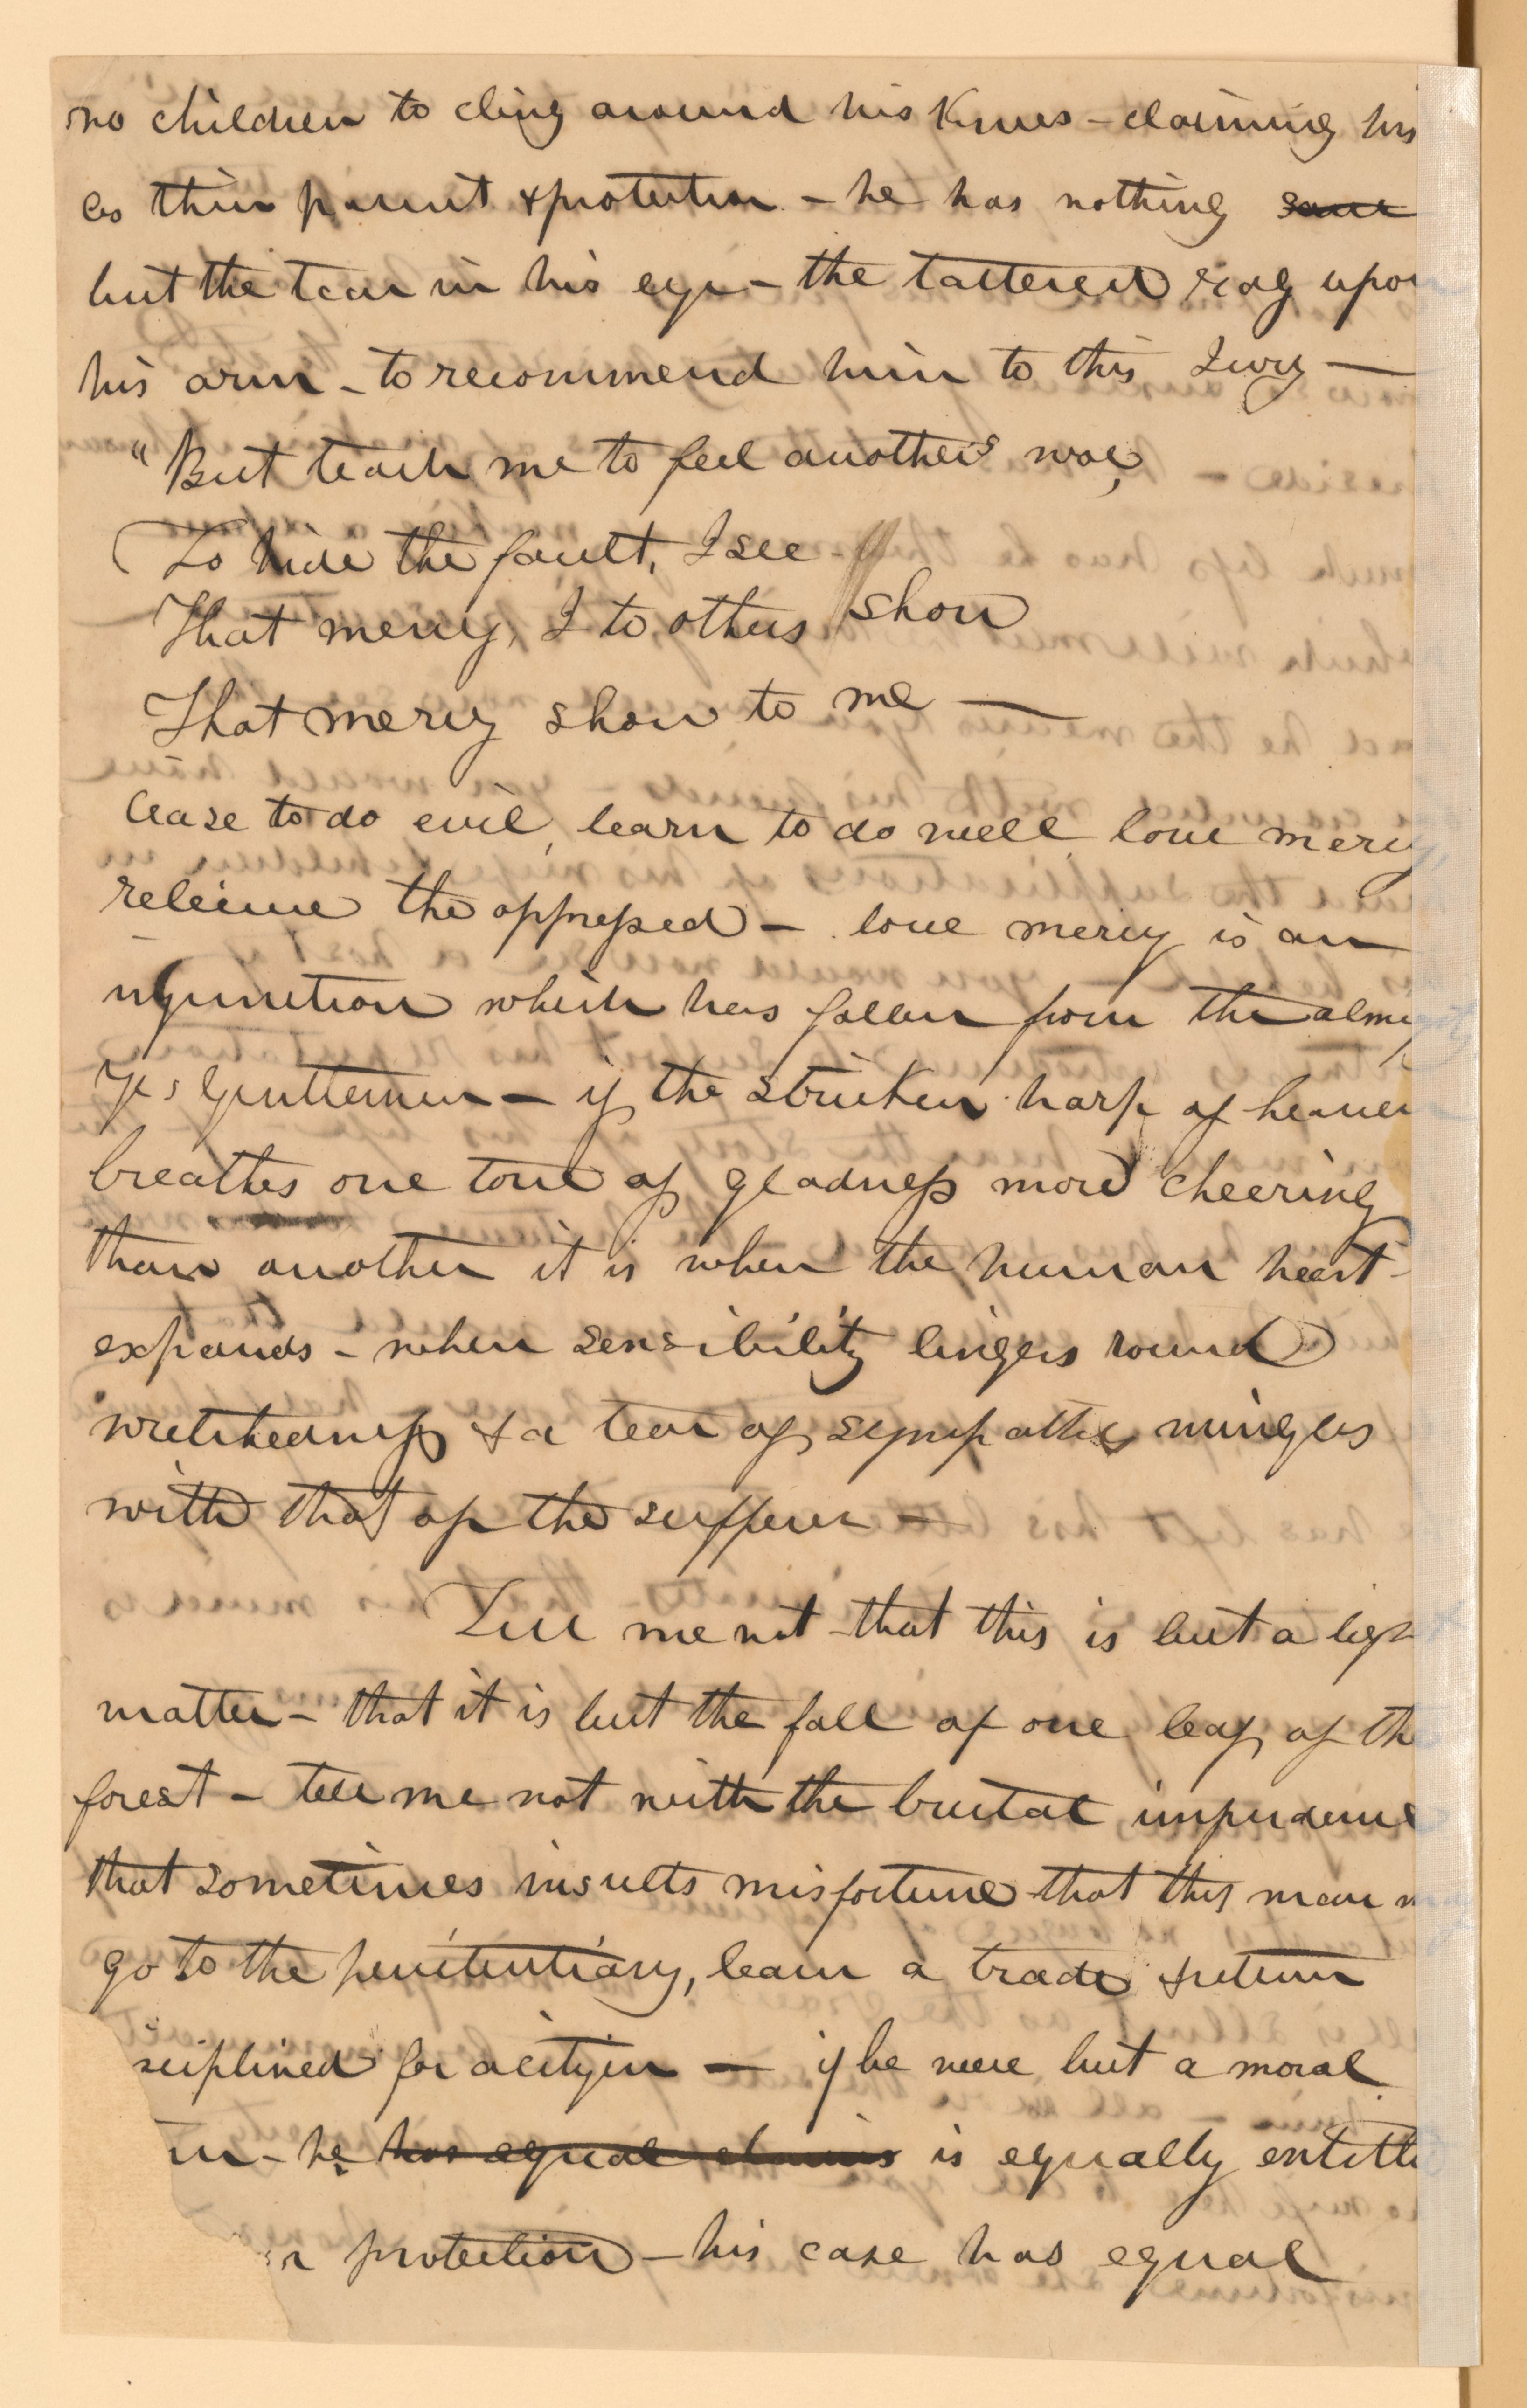 no children to cling around his knees - claiming his
as their parent & protector - he has nothing save
but the tear in his eye - the tattered rag upon
his arm - to recommend him to this Jury —
"But teach me to feel another's woe,
To hide the fault, I see
That mercy, I to others show
That mercy show to me —
Cease to do evil, learn to do well love mercy
releive the oppressed - love mercy is an
injunction which has fallen from the almi
Yes Gentlemen - if the stricken harp of heaven
breathes one tone of gladness more cheering
than another it is when the human heart -
expands - when sensibility lingers round
wretchedness & a tear of sympathy mingles
with that of the sufferer -
Tell me not - that this is but a ligh
matter - that it is but the fall of one leaf of the
forest - tell me not with the brutal impudence
that sometimes insults misfortune that this man m
go to the penitentiary, learn a trade & return
sciplined for a citizen — if he were but a moral
in - he has equal claims is equally entitle
protection - his case has equal